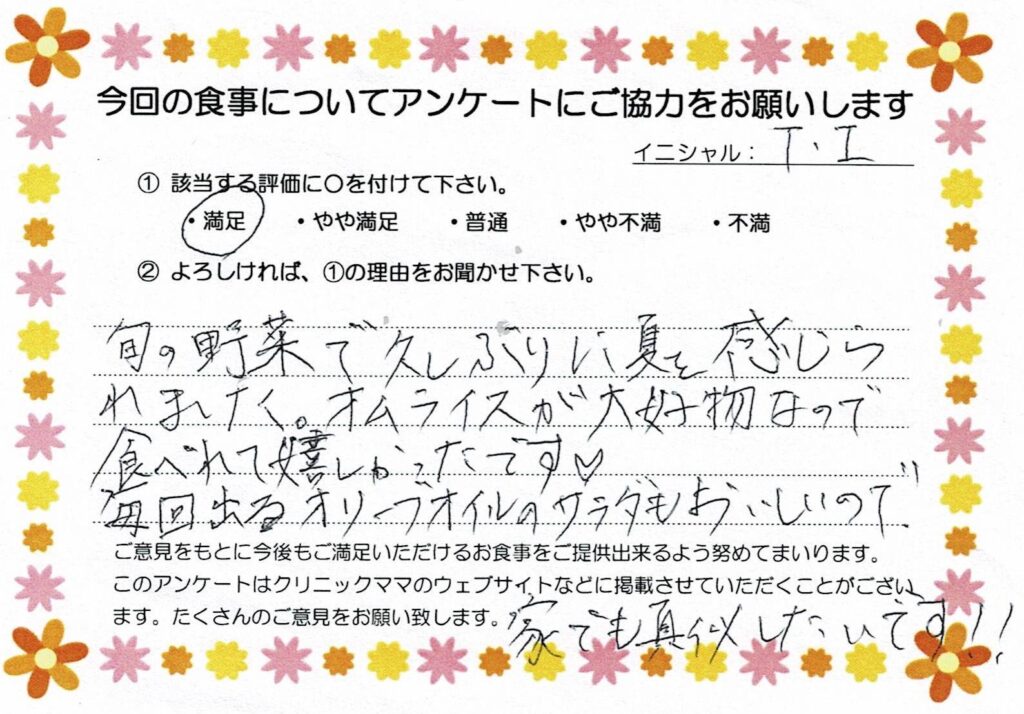 今回の食事についてアンケートにご協力をお願いします
イニシャル： T.I
① 該当する評価に〇を付けて下さい。
・満足　・やや満足　・普通　・やや不満　・不満
② よろしければ、①の理由をお聞かせ下さい。
旬の野菜で久しぶりに夏を感じら
れました。オムライスが大好物なので
食べれて嬉しかったです♡
毎回出るオリーブオイルのサラダもおいしいので
ご意見をもとに今後もご満足いただけるお食事をご提供出来るよう努めてまいります。
このアンケートはクリニックママのウェブサイトなどに掲載させていただくことがござい
ます。たくさんのご意見をお願い致します。
家でも真似したいです!!